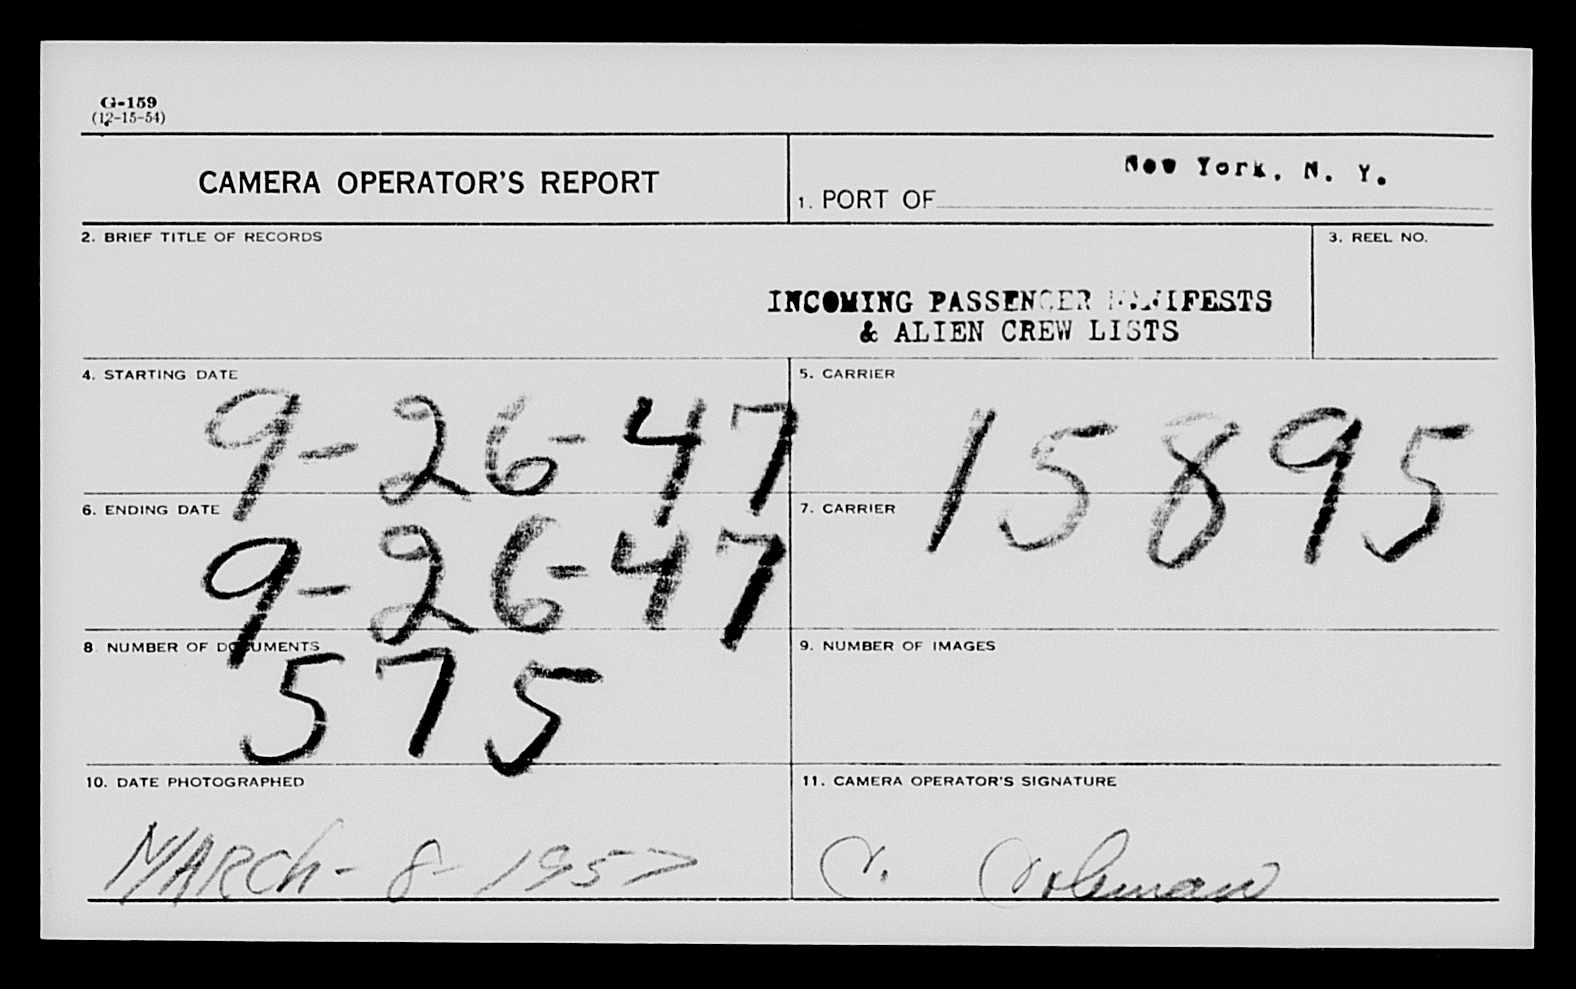 G-159
(12-15-54)
CAMERA OPERATOR'S REPORT
1. PORT OF New York, N. Y.
2. BRIEF TITLE OF RECORDS
3. REEL NO.
INCOMING PASSENGER MANIFESTS
& ALIEN CREW LISTS
4. STARTING DATE
9-26-47
5. CARRIER
15895
6. ENDING DATE
9-26-47
7. CARRIER
8 NUMBER OF DOCUMENTS
575
9. NUMBER OF IMAGES
10. DATE PHOTOGRAPHED
MARCh-8-1957
11. CAMERA OPERATOR'S SIGNATURE
C. Coleman